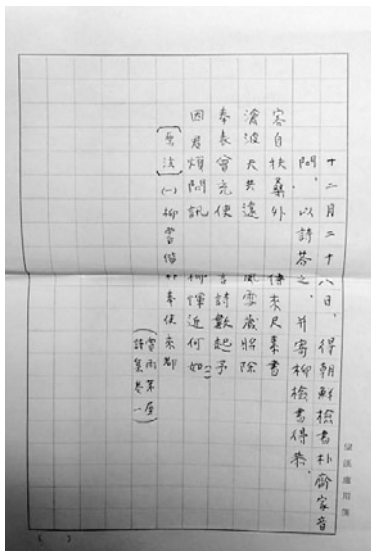 十二月二十八日，得朝鮮檢書朴齊家音
問，以詩答之，并寄柳檢書得恭。
客自扶桑外　傳來尺素書
滄波天共遠　風雪歲將除
奉表曾充使　言詩數起予
因君煩問訊　柳惲近何如(一)
〔原注〕(一)柳嘗偕朴奉使來都
詩集卷一)